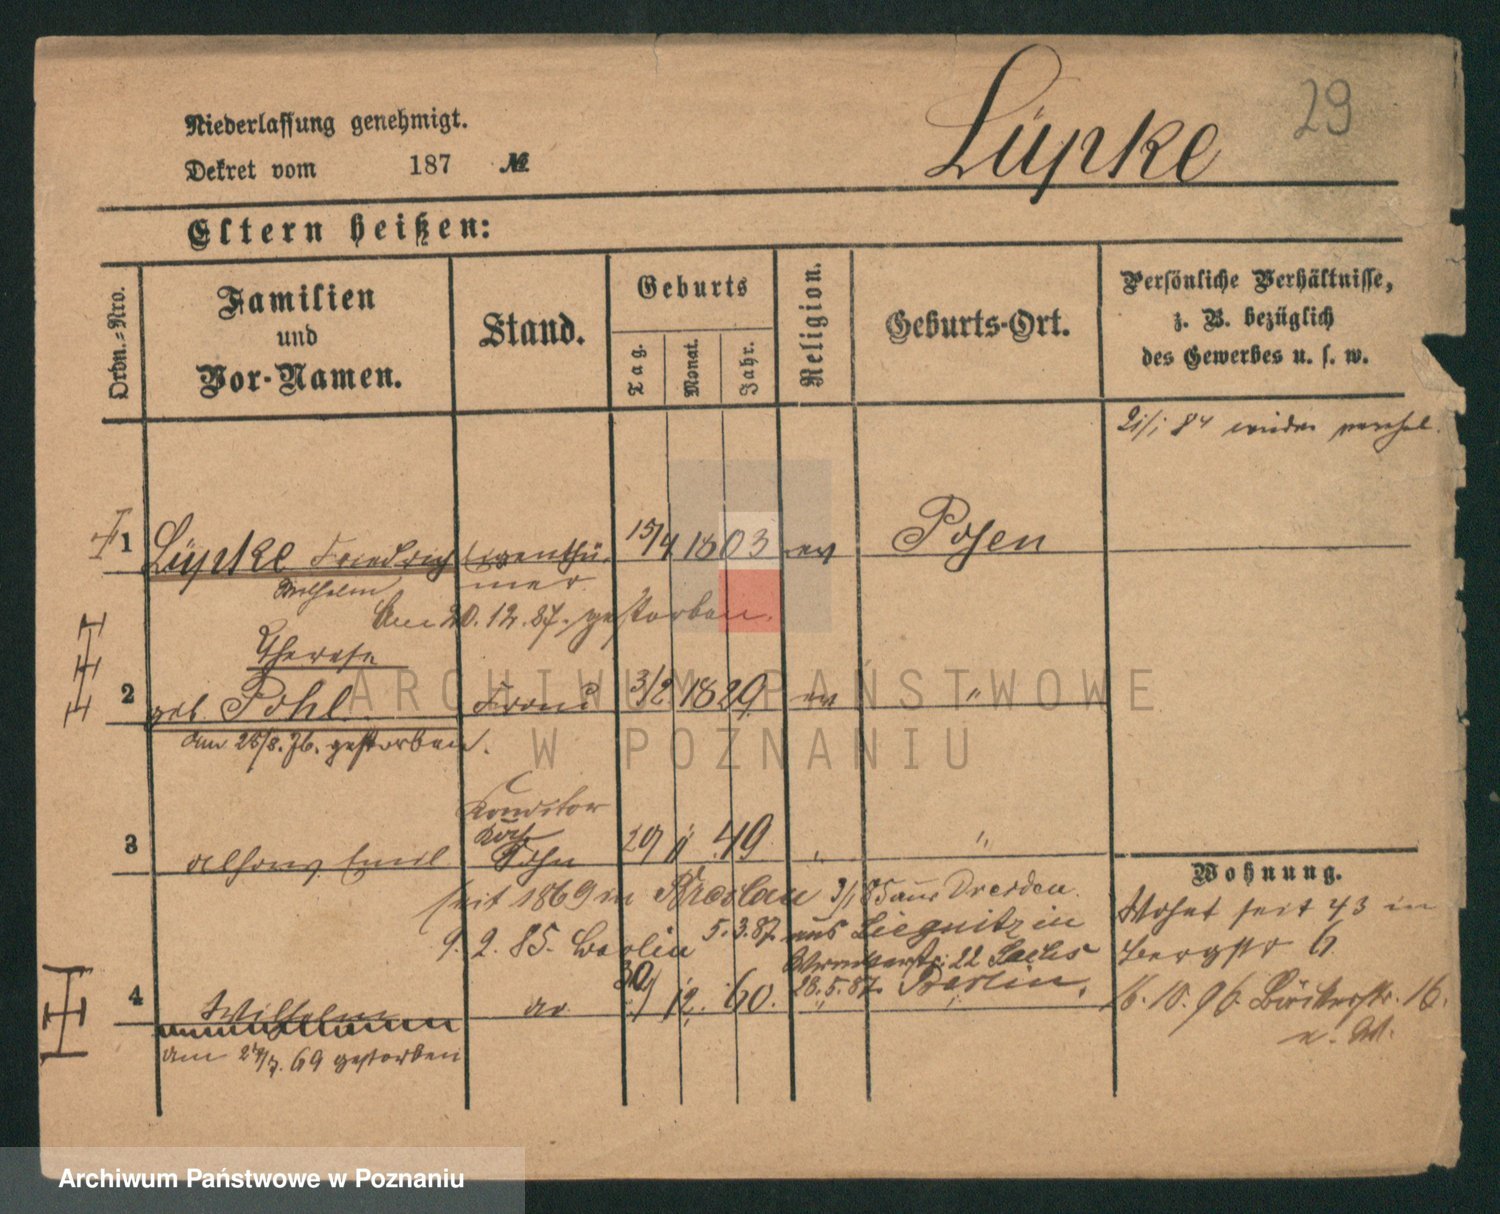 Lüpke
29
Niederlassung genehmigt.
Dekret vom 187 №
Eltern heißen:
Ordn.-Nro.
Familien
und
Vor-Namen.
Stand.
Geburts
Tag.
Monat.
Jahr.
Religion.
Geburts-Ort.
Persönliche Verhältnisse,
z. B. bezüglich
des Gewerbes u. s. w.
84 wieder
1 Lüpke Friedrich Eigenthü- 15/4 1803 ev Posen
Wilhelm mer
Am 20.12.87. gestorben.
Therese
2 geb. Pohl Frau 3/2 1829 ev "
am 25/8. 76. gestorben.
Konditor
Koch
3 Alfons Emil Sohn 29 49 " "
seit 1869 in Breslau 3/1 85 aus Dresden.
9. 2. 85. Berlin 5.3.87. aus Liegnitz in
22 Sachs
28.5.87. Berlin.
4 Wilhelm do 30 12. 60. "
am 69 gestorben
Wohnung.
Wohnt seit 43 in
Bergstr 6
16. 10. 96. 16.
ARCHIWUM PAŃSTWOWE
W POZNANIU
Archiwum Państwowe w Poznaniu